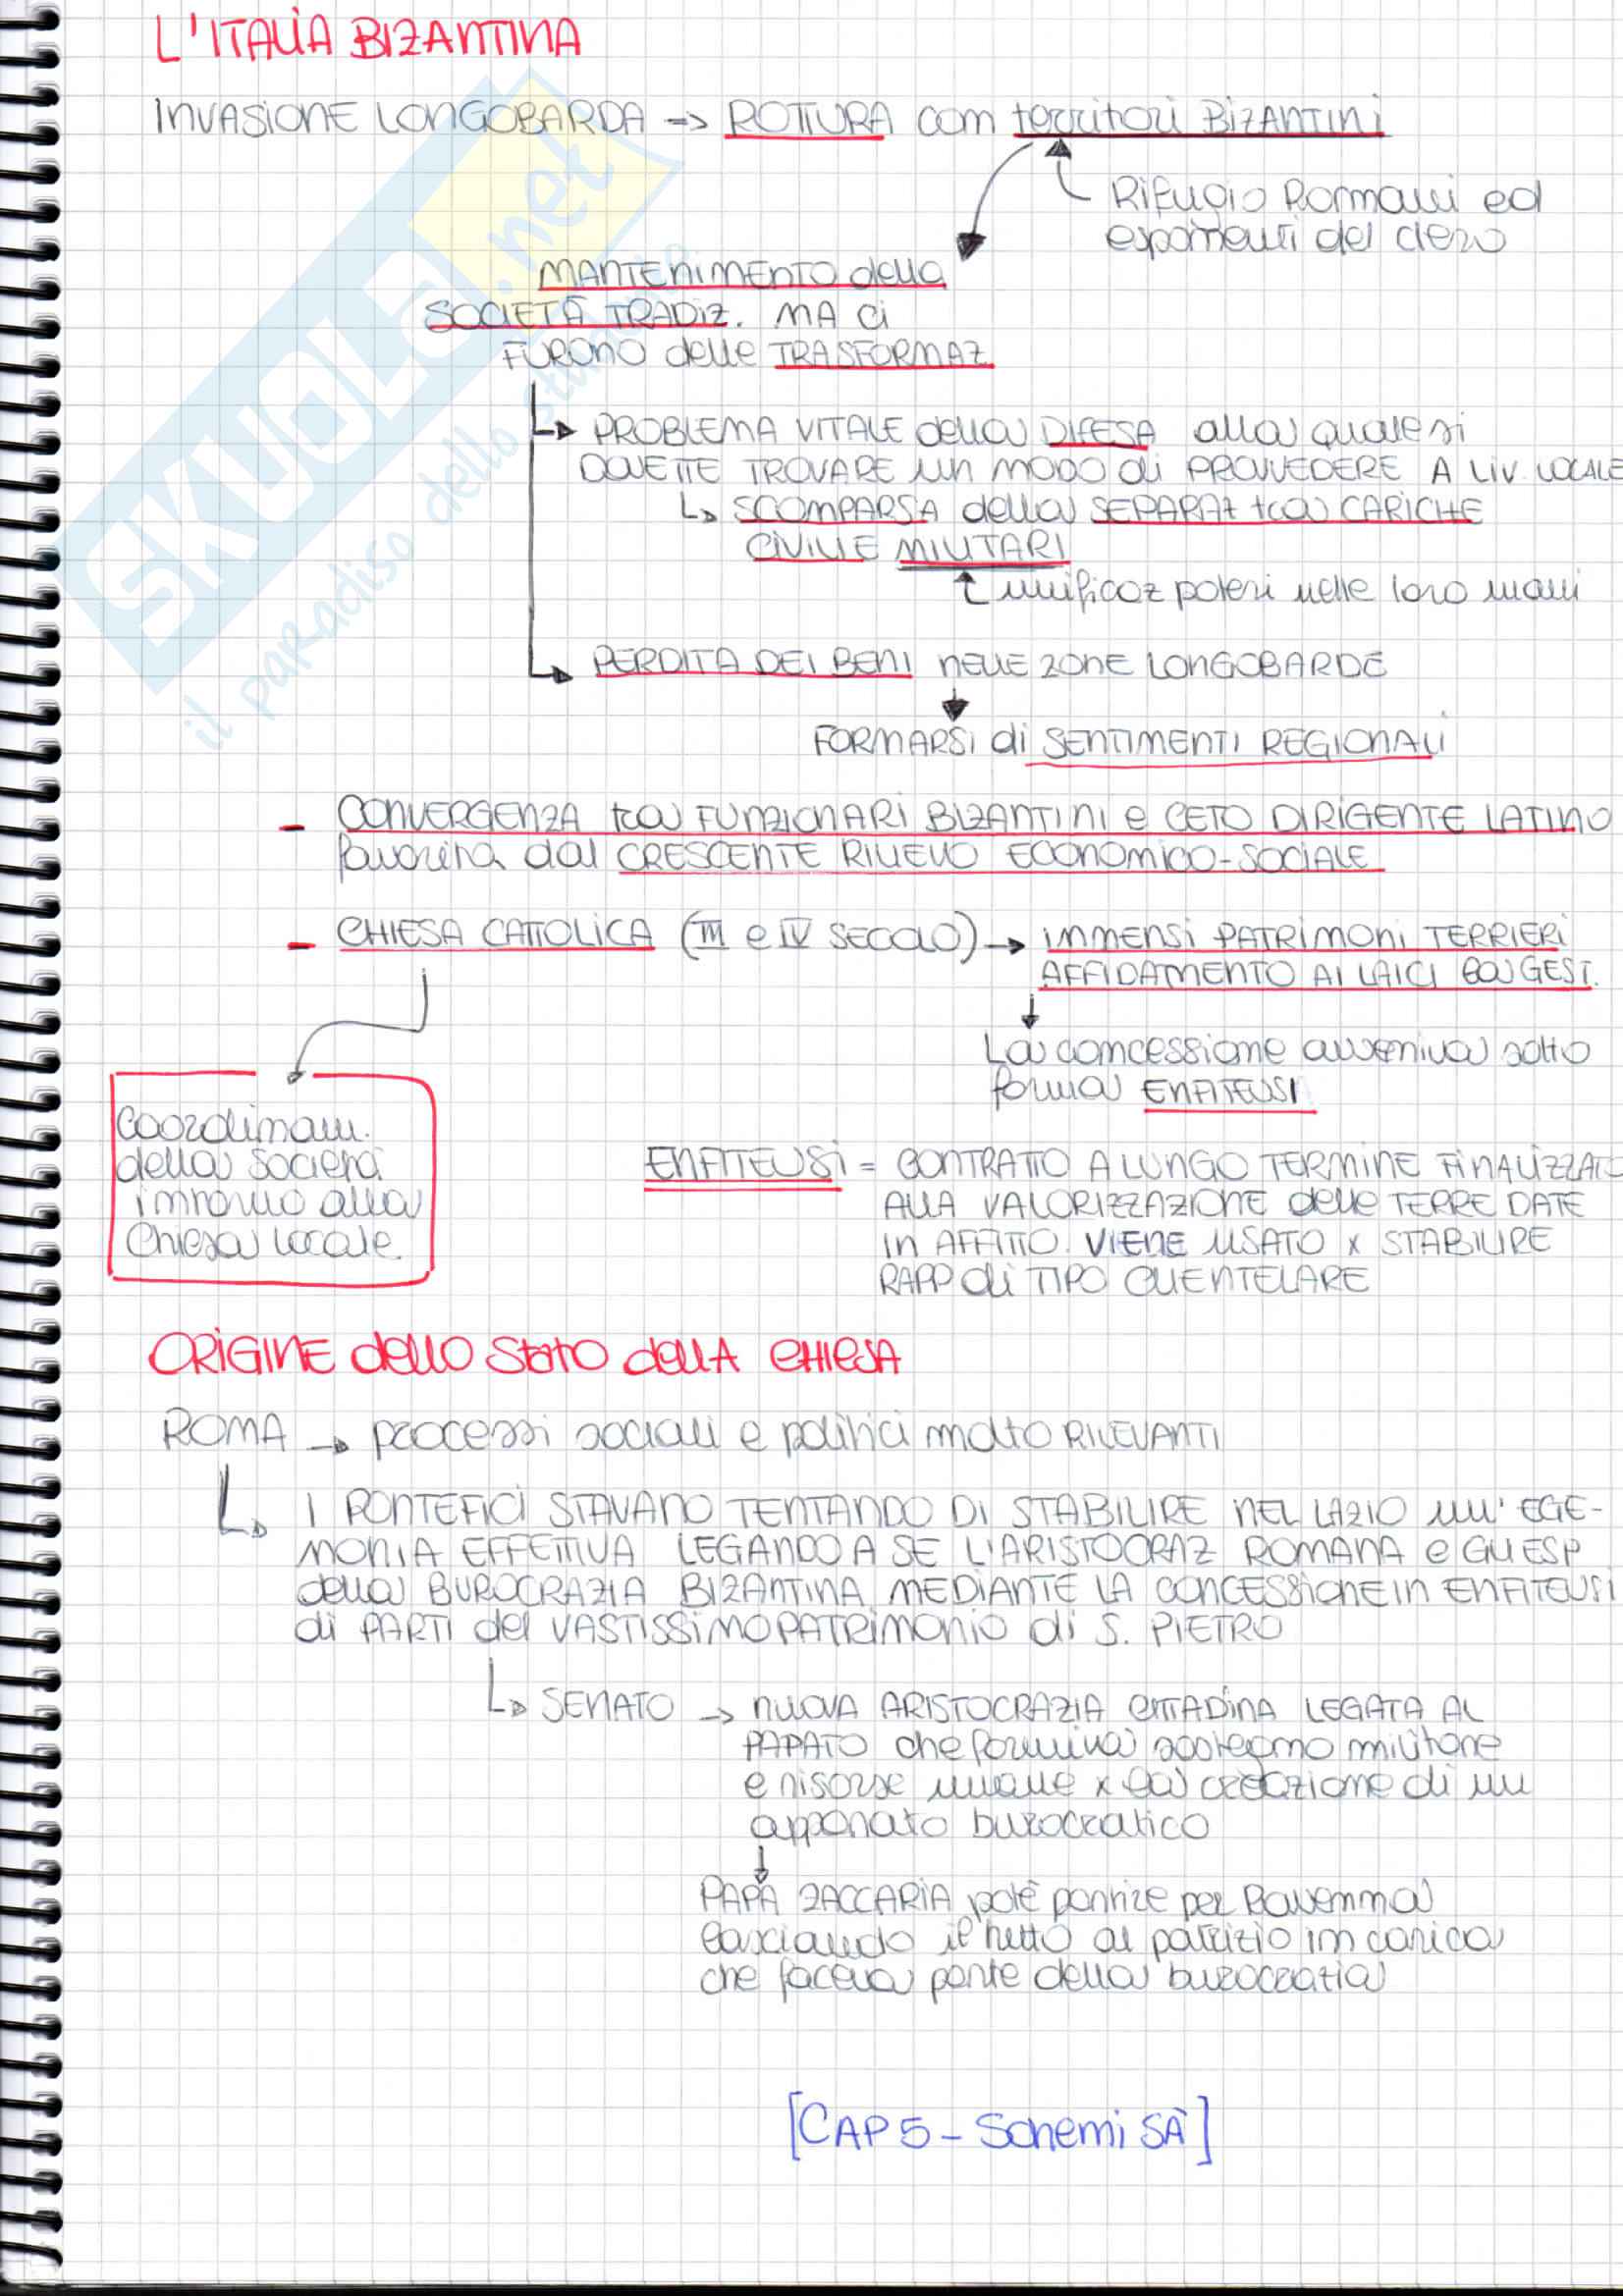 L'ITALIA BIZANTINA
INVASIONE LONGOBARDA -> ROTTURA con territori BIZANTINI
Rifugio Romani ed
esponenti del clero
MANTENIMENTO della
SOCIETÀ TRADIZ. MA ci
FURONO delle TRASFORMAZ
PROBLEMA VITALE della DIFESA alla quale si
DOVETTE TROVARE un MODO di PROVVEDERE A LIV. LOCALE
SCOMPARSA della SEPARAZ tra CARICHE
CIVILI E MILITARI
unificaz poteri nelle loro mani
PERDITA DEI BENI NELLE ZONE LONGOBARDE
FORMARSI di SENTIMENTI REGIONALI
- CONVERGENZA tra FUNZIONARI BIZANTINI e CETO DIRIGENTE LATINO
favorita dal CRESCENTE RILIEVO ECONOMICO-SOCIALE
- CHIESA CATTOLICA (III e IV SECOLO) → IMMENSI PATRIMONI TERRIERI
AFFIDAMENTO AI LAICI la GEST.
La concessione avveniva sotto
forma ENFITEUSI
Coordinam.
della società
intorno alla
Chiesa locale
ENFITEUSI = CONTRATTO A LUNGO TERMINE FINALIZZATO
ALLA VALORIZZAZIONE delle TERRE DATE
IN AFFITTO. VIENE USATO x STABILIRE
RAPP di TIPO CLIENTELARE
ORIGINE dello Stato della CHIESA
ROMA → processi sociali e politici molto RILEVANTI
I PONTEFICI STAVANO TENTANDO DI STABILIRE NEL LAZIO un'EGE-
MONIA EFFETTIVA LEGANDO A SE L'ARISTOCRAZ ROMANA e GLI ESP
della BUROCRAZIA BIZANTINA MEDIANTE LA CONCESSIONE IN ENFITEUSI
di PARTI del VASTISSIMO PATRIMONIO di S. PIETRO
SENATO → NUOVA ARISTOCRAZIA CITTADINA LEGATA AL
PAPATO che forniva sostegno militare
e risorse umane x la creazione di un
apparato burocratico
PAPA ZACCARIA potè partire per Ravenna
lasciando il tutto al patrizio in carica
che faceva parte della burocrazia
[CAP 5 - Schemi SÀ]
SKUOLA.net
il paradiso dello studente